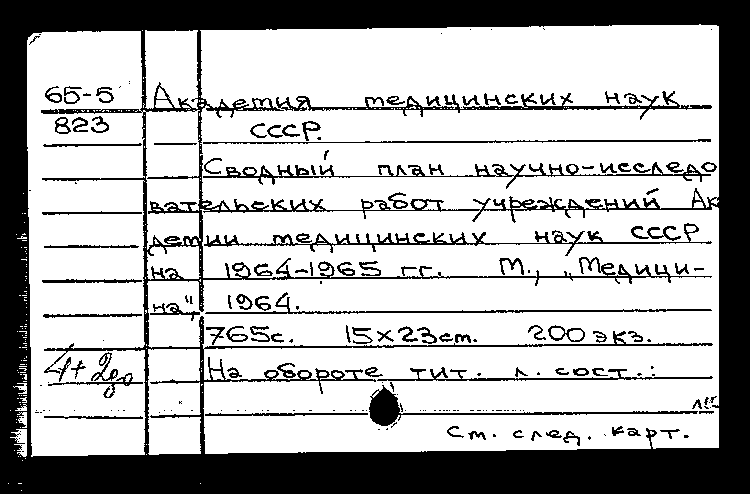 65-5 Академия медицинских наук
823 СССР.
Сводный план научно-исследо
вательских работ учреждений Ак
демии медицинских наук СССР
на 1964-1965 гг. М., „Медици-
на", 1964.
765с. 15х23см. 200 экз.
4+2до На обороте тит. л. сост.:
См. след. карт.